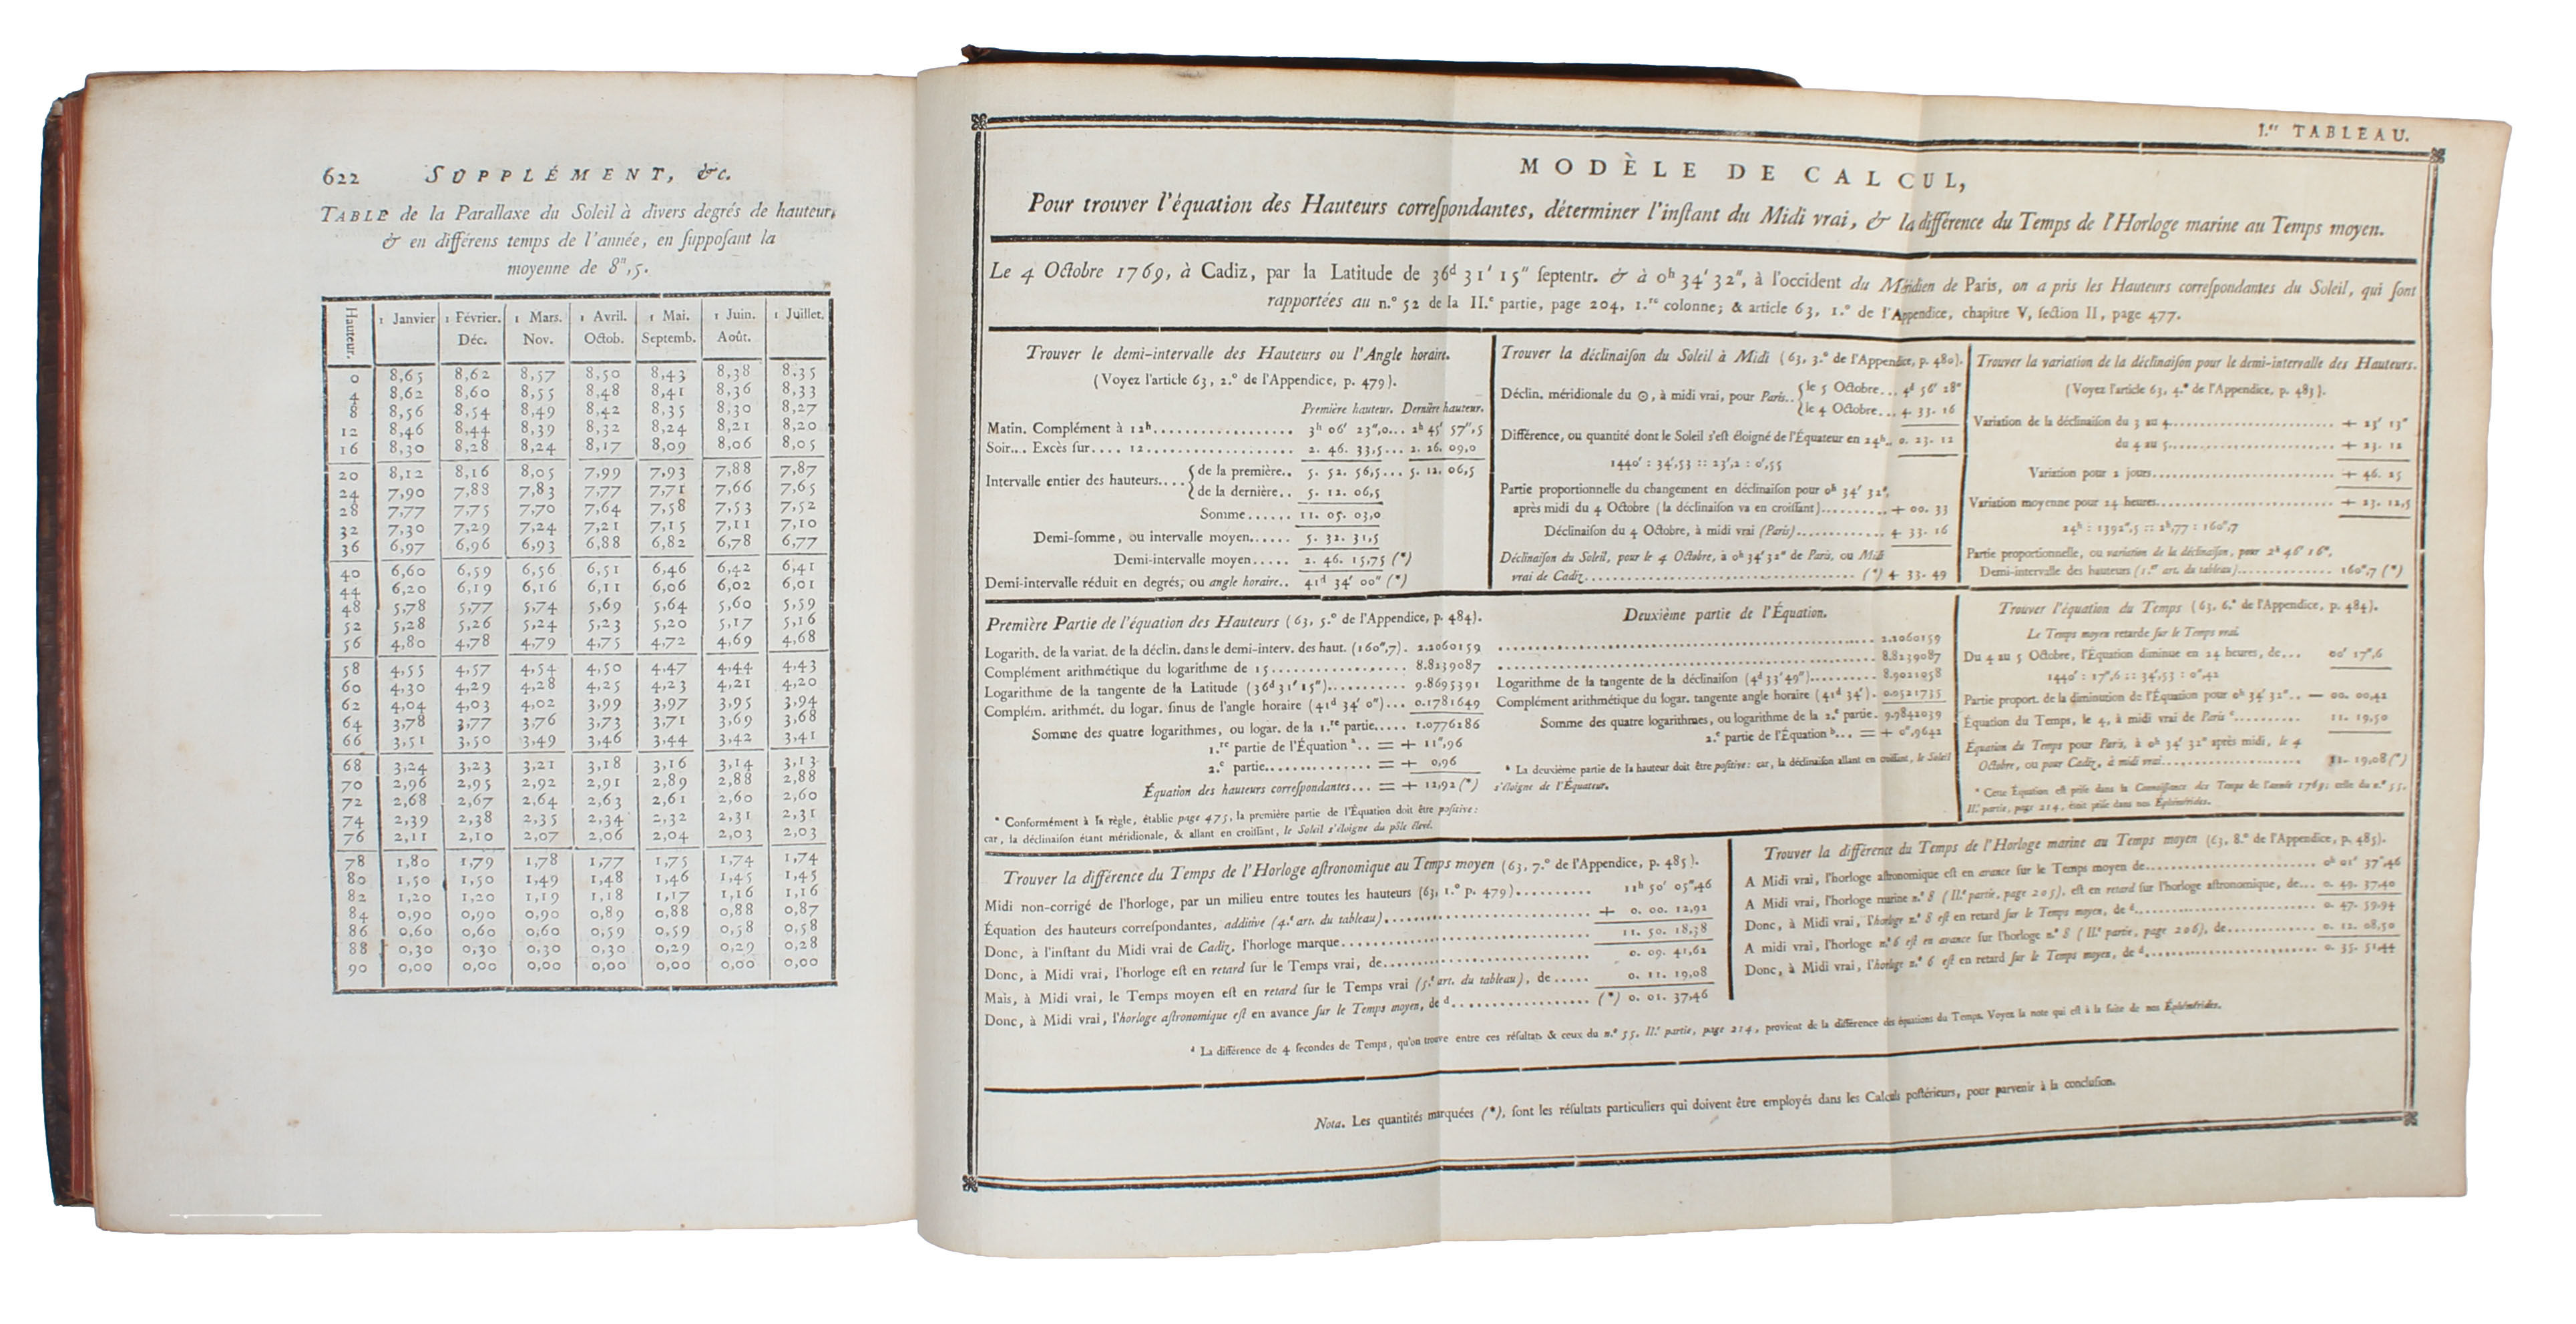 622 SUPPLÉMENT, &c.
TABLE de la Parallaxe du Soleil à divers degrés de hauteur,
& en différens temps de l'année, en ſuppoſant la
moyenne de 8",5.
Hauteur. 1 Janvier 1 Février. 1 Mars. 1 Avril. 1 Mai. 1 Juin. 1 Juillet.
Déc. Nov. Octob. Septemb. Août.
0 8,65 8,62 8,57 8,50 8,43 8,38 8,35
4 8,62 8,60 8,55 8,48 8,41 8,36 8,33
8 8,56 8,54 8,49 8,42 8,35 8,30 8,27
12 8,46 8,44 8,39 8,32 8,24 8,21 8,20
16 8,30 8,28 8,24 8,17 8,09 8,06 8,05
20 8,12 8,16 8,05 7,99 7,93 7,88 7,87
24 7,90 7,88 7,83 7,77 7,71 7,66 7,65
28 7,77 7,75 7,70 7,64 7,58 7,53 7,52
32 7,30 7,29 7,24 7,21 7,15 7,11 7,10
36 6,97 6,96 6,93 6,88 6,82 6,78 6,77
40 6,60 6,59 6,56 6,51 6,46 6,42 6,41
44 6,20 6,19 6,16 6,11 6,06 6,02 6,01
48 5,78 5,77 5,74 5,69 5,64 5,60 5,59
52 5,28 5,26 5,24 5,23 5,20 5,17 5,16
56 4,80 4,78 4,79 4,75 4,72 4,69 4,68
58 4,55 4,57 4,54 4,50 4,47 4,44 4,43
60 4,30 4,29 4,28 4,25 4,23 4,21 4,20
62 4,04 4,03 4,02 3,99 3,97 3,95 3,94
64 3,78 3,77 3,76 3,73 3,71 3,69 3,68
66 3,51 3,50 3,49 3,46 3,44 3,42 3,41
68 3,24 3,23 3,21 3,18 3,16 3,14 3,13
70 2,96 2,95 2,92 2,91 2,89 2,88 2,88
72 2,68 2,67 2,64 2,63 2,61 2,60 2,60
74 2,39 2,38 2,35 2,34 2,32 2,31 2,31
76 2,11 2,10 2,07 2,06 2,04 2,03 2,03
78 1,80 1,79 1,78 1,77 1,75 1,74 1,74
80 1,50 1,50 1,49 1,48 1,46 1,45 1,45
82 1,20 1,20 1,19 1,18 1,17 1,16 1,16
84 0,90 0,90 0,90 0,89 0,88 0,88 0,87
86 0,60 0,60 0,60 0,59 0,59 0,58 0,58
88 0,30 0,30 0,30 0,30 0,29 0,29 0,28
90 0,00 0,00 0,00 0,00 0,00 0,00 0,00
I.er TABLEAU.
MODÈLE DE CALCUL,
Pour trouver l'équation des Hauteurs correſpondantes, déterminer l'inſtant du Midi vrai, & la différence du Temps de l'Horloge marine au Temps moyen.
Le 4 Octobre 1769, à Cadiz, par la Latitude de 36d 31′ 15″ ſeptentr. & à 0h 34′ 32″, à l'occident du Méridien de Paris, on a pris les Hauteurs correſpondantes du Soleil, qui ſont
rapportées au n.° 52 de la II.e partie, page 204, 1.re colonne; & article 63, 1.° de l'Appendice, chapitre V, ſection II, page 477.
Trouver le demi-intervalle des Hauteurs ou l'Angle horaire.
(Voyez l'article 63, 2.° de l'Appendice, p. 479).
Première hauteur. Dernière hauteur.
Matin. Complément à 12h.................. 3h 06′ 23″,0... 2h 45′ 57″,5
Soir... Excès ſur.... 12.................. 2. 46. 33,5... 2. 26. 09,0
Intervalle entier des hauteurs.... { de la première.. 5. 52. 56,5... 5. 12. 06,5
de la dernière.. 5. 12. 06,5
Somme...... 11. 05. 03,0
Demi-ſomme, ou intervalle moyen...... 5. 32. 31,5
Demi-intervalle moyen..... 2. 46. 15,75 (*)
Demi-intervalle réduit en degrés, ou angle horaire.. 41d 34′ 00″ (*)
Trouver la déclinaiſon du Soleil à Midi (63, 3.° de l'Appendice, p. 480).
Déclin. méridionale du ☉, à midi vrai, pour Paris.. { le 5 Octobre... 4d 56′ 28″
le 4 Octobre... 4. 33. 16
Différence, ou quantité dont le Soleil s'eſt éloigné de l'Équateur en 24h.. 0. 23. 12
1440′ : 34′,53 :: 23′,2 : 0′,55
Partie proportionnelle du changement en déclinaiſon pour 0h 34′ 32″,
après midi du 4 Octobre (la déclinaiſon va en croiſſant).......... + 00. 33
Déclinaiſon du 4 Octobre, à midi vrai (Paris)............. 4 33. 16
Déclinaiſon du Soleil, pour le 4 Octobre, à 0h 34′ 32″ de Paris, ou Midi
vrai de Cadiz........................................ (*) 4 33. 49
Trouver la variation de la déclinaiſon pour le demi-intervalle des Hauteurs.
(Voyez l'article 63, 4.° de l'Appendice, p. 483).
Variation de la déclinaiſon du 3 au 4.................... + 23′ 13″
du 4 au 5.................... + 23. 12
Variation pour 2 jours.................... + 46. 25
Variation moyenne pour 24 heures.................... + 23. 12,5
24h : 1392″,5 :: 2h,77 : 160″,7
Partie proportionnelle, ou variation de la déclinaiſon, pour 2h 46′ 16″,
Demi-intervalle des hauteurs (1.er art. du tableau)............... 160″,7 (*)
Première Partie de l'équation des Hauteurs (63, 5.° de l'Appendice, p. 484).
Logarith. de la variat. de la déclin. dans le demi-interv. des haut. (160″,7). 2.2060159
Complément arithmétique du logarithme de 15................ 8.8239087
Logarithme de la tangente de la Latitude (36d 31′ 15″).......... 9.8695391
Complém. arithmét. du logar. ſinus de l'angle horaire (41d 34′ 0″)... 0.1781649
Somme des quatre logarithmes, ou logar. de la 1.re partie..... 1.0776286
1.re partie de l'Équation a.. = + 11″,96
2.e partie.............. = + 0,96
Équation des hauteurs correſpondantes... = + 12,92 (*)
a Conformément à la règle, établie page 475, la première partie de l'Équation doit être poſitive:
car, la déclinaiſon étant méridionale, & allant en croiſſant, le Soleil s'éloigne du pôle élevé.
Deuxième partie de l'Équation.
.................................................. 2.2060159
.................................................. 8.8239087
Logarithme de la tangente de la déclinaiſon (4d 33′ 49″).......... 8.9021058
Complément arithmétique du logar. tangente angle horaire (41d 34′). 0.0521735
Somme des quatre logarithmes, ou logarithme de la 2.e partie. 9.9842039
2.e partie de l'Équation b... = + 0″,9642
b La deuxième partie de la hauteur doit être poſitive: car, la déclinaiſon allant en croiſſant, le Soleil
s'éloigne de l'Équateur.
Trouver l'équation du Temps (63, 6.° de l'Appendice, p. 484).
Le Temps moyen retarde ſur le Temps vrai.
Du 4 au 5 Octobre, l'Équation diminue en 24 heures, de... 00′ 17″,6
1440′ : 17″,6 :: 34′,53 : 0″,42
Partie proport. de la diminution de l'Équation pour 0h 34′ 32″.. — 00. 00,42
Équation du Temps, le 4, à midi vrai de Paris c.......... 11. 19,50
Équation du Temps pour Paris, à 0h 34′ 32″ après midi, le 4
Octobre, ou pour Cadiz, à midi vrai.................... 11. 19,08 (*)
c Cette Équation eſt priſe dans la Connoiſſance des Temps de l'année 1769; celle du n.° 55,
II.e partie, page 214, étoit priſe dans nos Éphémérides.
Trouver la différence du Temps de l'Horloge aſtronomique au Temps moyen (63, 7.° de l'Appendice, p. 485).
Midi non-corrigé de l'horloge, par un milieu entre toutes les hauteurs (63, 1.° p. 479).......... 11h 50′ 05″,46
Équation des hauteurs correſpondantes, additive (4.e art. du tableau).............................. + 0. 00. 12,92
Donc, à l'inſtant du Midi vrai de Cadiz, l'horloge marque.............................. 11. 50. 18,38
Donc, à Midi vrai, l'horloge eſt en retard ſur le Temps vrai, de......................... 0. 09. 41,62
Mais, à Midi vrai, le Temps moyen eſt en retard ſur le Temps vrai (5.e art. du tableau), de..... 0. 11. 19,08
Donc, à Midi vrai, l'horloge aſtronomique eſt en avance ſur le Temps moyen, de d.................. (*) 0. 01. 37,46
Trouver la différence du Temps de l'Horloge marine au Temps moyen (63, 8.° de l'Appendice, p. 485).
A Midi vrai, l'horloge aſtronomique eſt en avance ſur le Temps moyen de.................... 0h 01′ 37″,46
A Midi vrai, l'horloge marine n.° 8 (II.e partie, page 205), eſt en retard ſur l'horloge aſtronomique, de... 0. 49. 37,40
Donc, à Midi vrai, l'horloge n.° 8 eſt en retard ſur le Temps moyen, de d.................... 0. 47. 59,94
A midi vrai, l'horloge n.° 6 eſt en avance ſur l'horloge n.° 8 (II.e partie, page 206), de............... 0. 12. 08,50
Donc, à Midi vrai, l'horloge n.° 6 eſt en retard ſur le Temps moyen, de d.................... 0. 35. 51,44
d La différence de 4 ſecondes de Temps, qu'on trouve entre ces réſultats & ceux du n.° 55, II.e partie, page 214, provient de la différence des équations du Temps. Voyez la note qui eſt à la ſuite de nos Éphémérides.
Nota. Les quantités marquées (*), ſont les réſultats particuliers qui doivent être employés dans les Calculs poſtérieurs, pour parvenir à la concluſion.